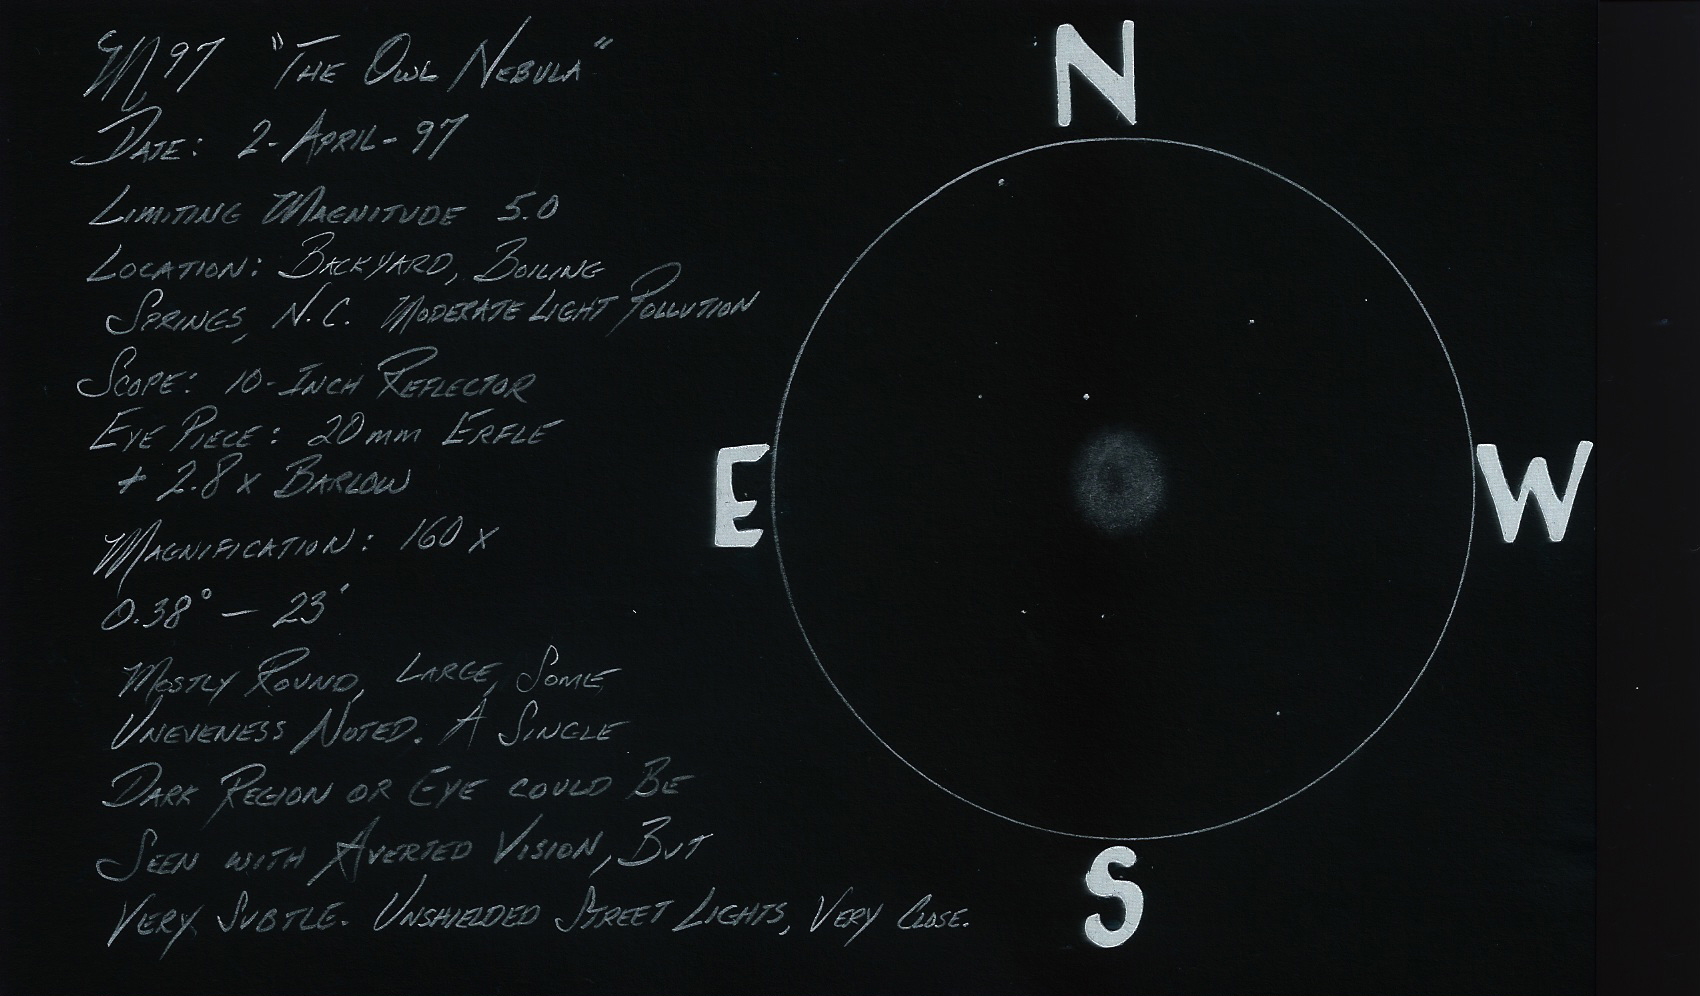 M97 "The Owl Nebula"
Date: 2-April-97
Limiting Magnitude 5.0
Location: Backyard, Boiling
Springs, N.C. Moderate Light Pollution
Scope: 10-Inch Reflector
Eye Piece: 20mm Erfle
+ 2.8x Barlow
Magnification: 160x
0.38° — 23'
Mostly Round, Large, Some
Uneveness Noted. A Single
Dark Region or Eye could Be
Seen with Averted Vision, But
Very Subtle. Unshielded Street Lights, Very Close.
N
E
W
S